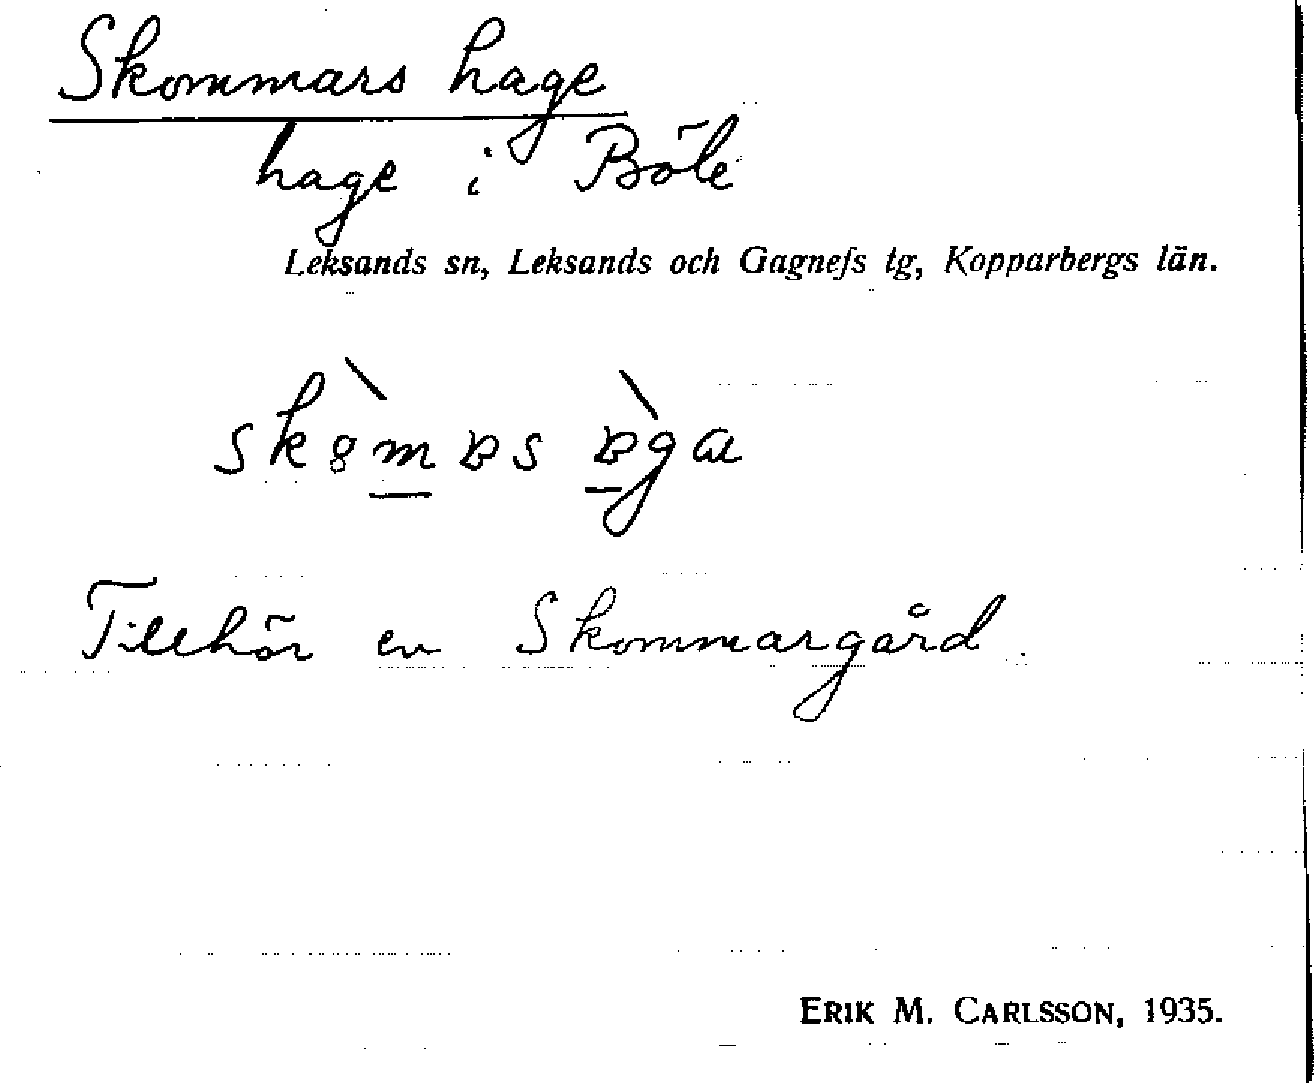 Skommars hage
hage i Böle
Leksands sn, Leksands och Gagnefs tg, Kopparbergs län.
Tillhör en Skommargård.
ERIK M. CARLSSON, 1935.